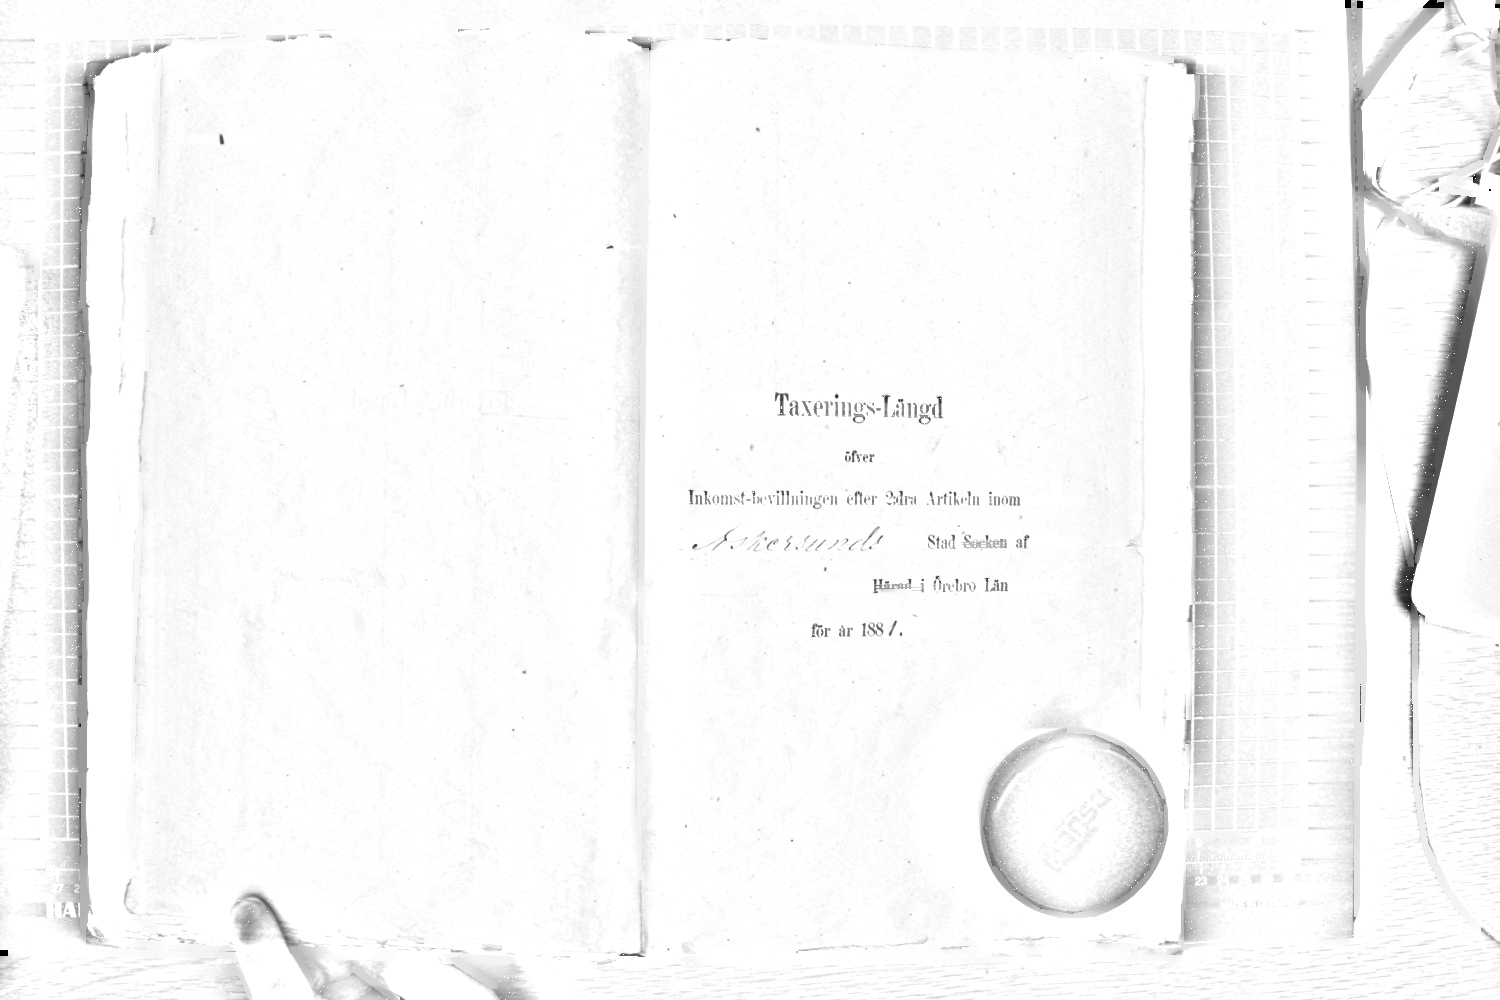 Taxerings-Längd
öfver
Inkomst-bevillningen efter 2:dra Artikeln inom
Askersunds Stad Socken af
Härad i Örebro Län
för år 1881.
23